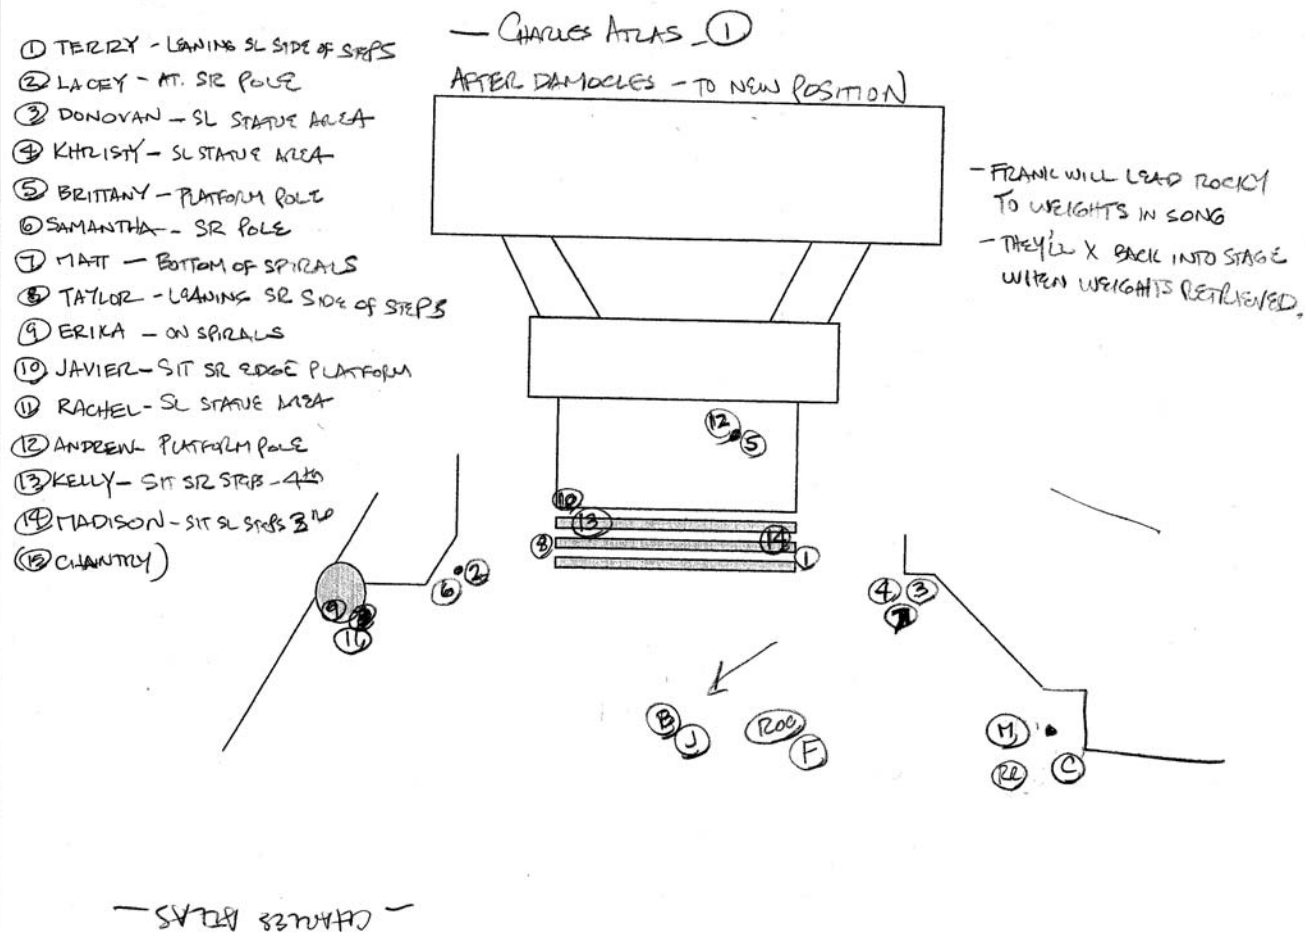 — CHARLES ATLAS — ①
AFTER DAMOCLES - TO NEW POSITION
① TERRY - LEANING SL SIDE OF STEPS
② LACEY - AT. SR POLE
③ DONOVAN - SL STATUE AREA
④ KHRISTY - SL STATUE AREA
⑤ BRITTANY - PLATFORM POLE
⑥ SAMANTHA - SR POLE
⑦ MATT - BOTTOM OF SPIRALS
⑧ TAYLOR - LEANING SR SIDE OF STEPS
⑨ ERIKA - ON SPIRALS
⑩ JAVIER - SIT SR EDGE PLATFORM
⑪ RACHEL - SL STATUE AREA
⑫ ANDREW - PLATFORM POLE
⑬ KELLY - SIT SR STEPS - 4th
⑭ MADISON - SIT SL STEPS 3rd
(⑮ CHANTRY)
- FRANK WILL LEAD ROCKY
TO WEIGHTS IN SONG
- THEY'LL X BACK INTO STAGE
WHEN WEIGHTS RETRIEVED.
12
5
10
13
14
8
1
2
6
9
11
4 3
B
J
ROC
F
M
RR
C
— CHARLES ATLAS —